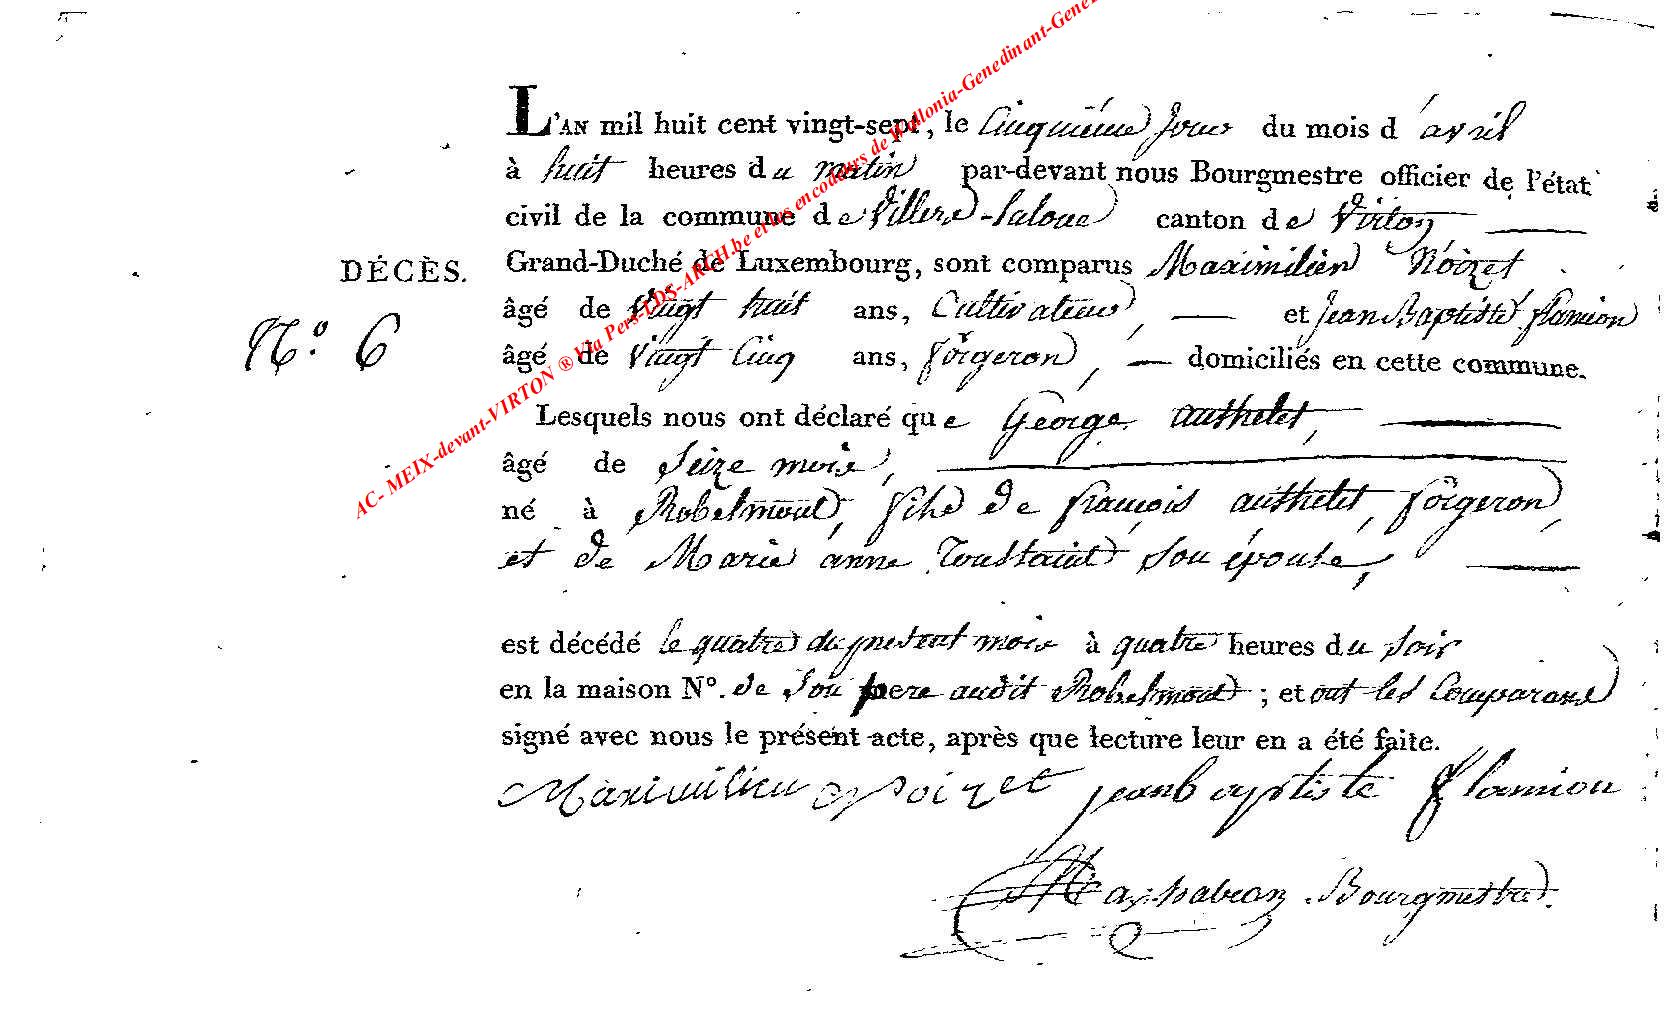 L'AN mil huit cent vingt-sept, le Cinquième jour du mois d'avril
à huit heures du matin par-devant nous Bourgmestre officier de l'état
civil de la commune de Villers-laloue canton de Virton
DÉCÈS. Grand-Duché de Luxembourg, sont comparus Maximilien Noizet
âgé de Vingt huit ans, Cultivateur, et Jean Baptiste flamion
N.º 6 âgé de Vingt Cinq ans, forgeron, domiciliés en cette commune.
Lesquels nous ont déclaré que George authelet,
âgé de Seize mois,
né à Robelmont, fils de françois authelet, forgeron,
et de Marie anne Toustaint Son épouse,
est décédé le quatre du présent mois à quatre heures du soir
en la maison Nº. de Son pere audit Robelmont ; et ont les Comparans
signé avec nous le présent acte, après que lecture leur en a été faite.
Maximilien Noizet jean baptiste flamion
Bourgmestre.
AC- MEIX-devant-VIRTON ® Via Pers-LDS-ARCH.be et les encodeurs de Wallonia-Genedinant-Gene